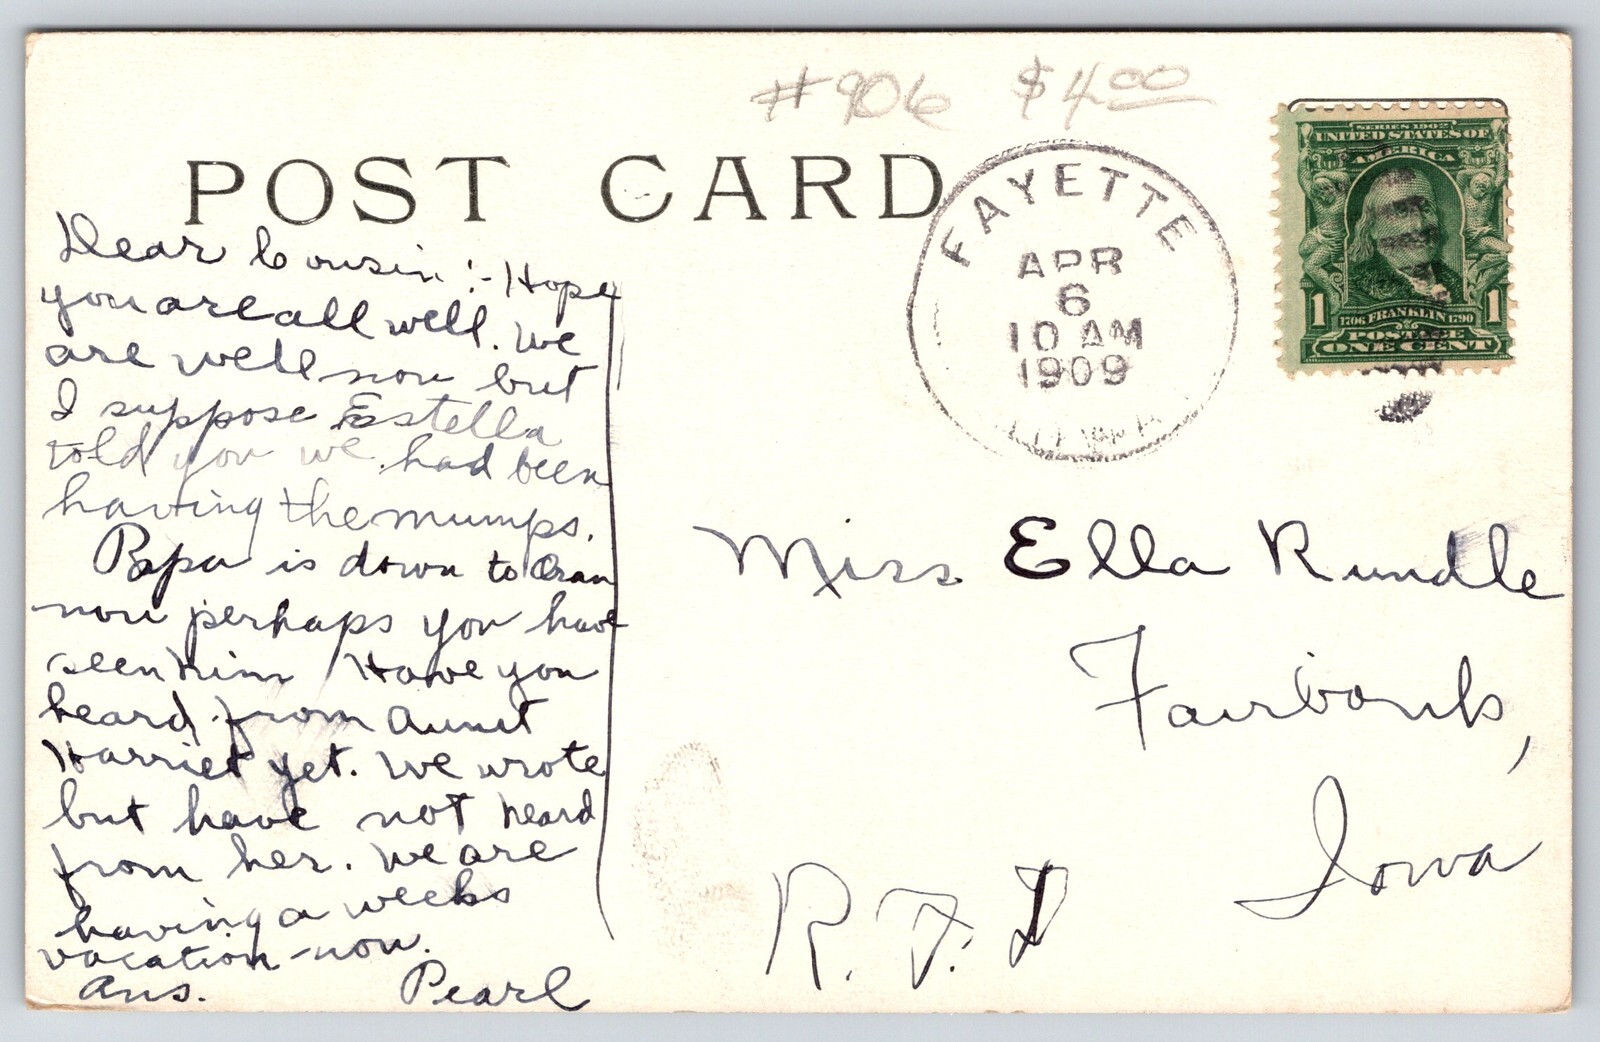 #906 $4.00
POST CARD
FAYETTE
APR
6
10 AM
1909
SERIES 1902
UNITED STATES OF
AMERICA
1 1706 FRANKLIN 1790 1
POSTAGE
ONE CENT
Dear Cousin:- Hope
you are all well. We
are well now but
I suppose Estella
told you we had been
having the mumps.
Papa is down to Oran
now perhaps you have
seen him Have you
heard from Aunt
Harriet yet. We wrote
but have not heard
from her. We are
having a weeks
vacation now.
Ans. Pearl
Miss Ella Rundle
Fairbank,
Iowa
R.F.D